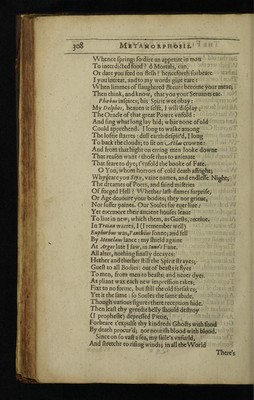 308 METAMORPHOSIS.
Whence springs so dire an appetite in men
To interdicted food? ô Mortals, can,
Or dare you feed on flesh? henceforth forbeare
I you intreat, and to my words give eare:
When limmes of slaughtred Beeves become your meat;
Then think, and know, that you your Servants eat.
Phœbus inspires; his Spirit we obay:
My Delphos, heaven it selfe, I will display;
The Oracle of that great Powre unfold:
And sing what long lay hid; what none of old
Could apprehend. I long to walke among
The loftie starres: dull earth despis'd, I long
To back the clouds; to sit on Atlas crowne:
And from that hight on erring men looke downe
That reason want: those thus to animate
That feare to dy; t'unfold the booke of Fate.
O You, whom horror of cold death affrights;
Why feare you Styx, vaine names, and endlesse Night;
The dreames of Poets, and faind miseries
Of forged Hell? Whether last-flames surprise,
Or Age devoure your bodies; they nor grieve,
Nor suffer paines. Our Soules for ever live:
Yet evermore their ancient houses leave
To live in new; which them, as Guests, receive.
In Trojan warres, I (I remember well)
Euphorbus was, Panthous sonne; and fell
By Menelaus lance: my shield againe
At Argos late I saw, in Juno's Fane.
All alter, nothing finally decayes:
Hether and thether still the Spirit strayes;
Guest to all Bodies: out of beasts it flyes
To men, from men to beasts; and never dyes.
As pliant wax each new impression takes;
Fixt to no forme, but still the old forsakes;
Yet it the same: so Soules the same abide,
Though various figures there reception hide.
Then least thy greedie belly should destroy
(I prophesie) depressed Pietie,
Forbeare t'expulse thy kindreds Ghosts with food
By death procur'd; nor nourish blood with blood.
Since on so vast a sea, my saile's unfurld,
And stretcht to rising winds; in all the World
There's